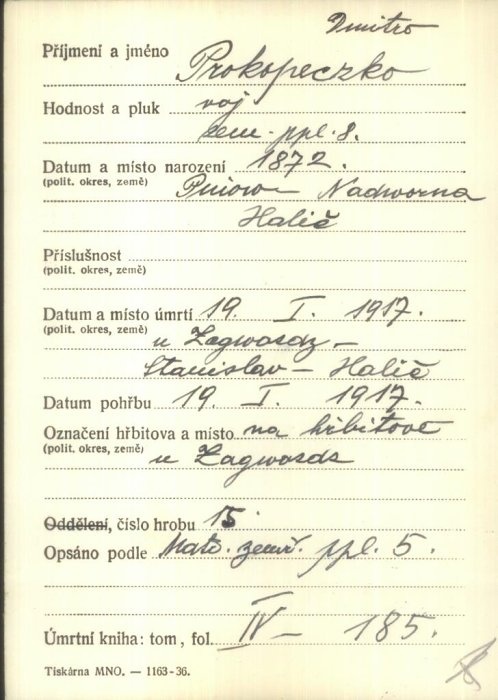 Dmitro
Příjmení a jméno Prokopeczko
Hodnost a pluk voj
zem. ppl. 8.
Datum a místo narození 1872.
(polit. okres, země) Pniow – Nadworna
Halič
Příslušnost
(polit. okres, země)
Datum a místo úmrtí 19. I. 1917.
(polit. okres, země) u Zagwosdz –
Stanislav – Halič
Datum pohřbu 19. I. 1917.
Označení hřbitova a místo na hřbitově
(polit. okres, země) u Zagwosdz
Oddělení, číslo hrobu 15
Opsáno podle Matr. zemř. ppl. 5.
Úmrtní kniha: tom, fol. IV – 185.
Tiskárna MNO. — 1163-36.